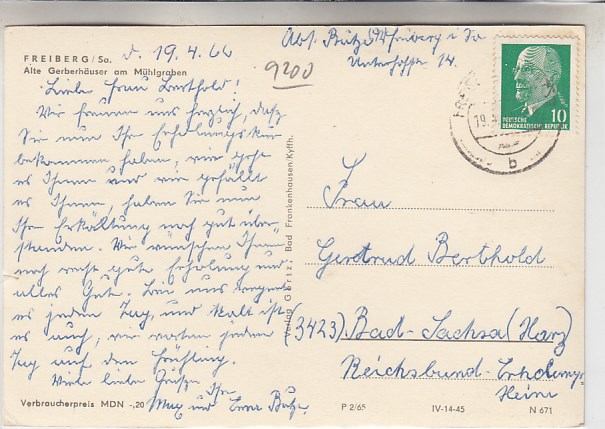 FREIBERG/Sa.
Alte Gerberhäuser am Mühlgraben
d. 19.4.66
Liebe Frau Berthold!
Wir freuen uns herzlich, daß
Sie nun Ihre Erholungskur
bekommen haben, wie geht
es Ihnen und wie gefällt
es Ihnen, haben Sie nun
Ihre Erkältung noch gut über-
standen. Wir wünschen Ihnen
noch recht gute Erholung und
alles Gute. Bei uns regnet
es jeden Tag, und kalt ist
es auch, wir warten jeden
Tag auf den Frühling.
Viele liebe Grüße
Ihre
und Erna
Verbraucherpreis MDN -,20
Verlag Görtz, Bad Frankenhausen/Kyffh.
Abs. Freiberg i. Sa
Unterhofstr. 14.
9200
DEUTSCHE
DEMOKRATISCHE REPUBLIK
10
19.
b
Frau
Gertrud Berthold
(3423) Bad-Sachsa (Harz)
Reichsbund-Erholungs-
Heim
P 2/65
IV-14-45
N 671